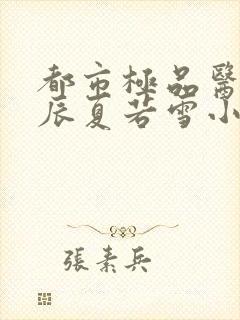 都市極品醫
辰夏若雪小
張素兵